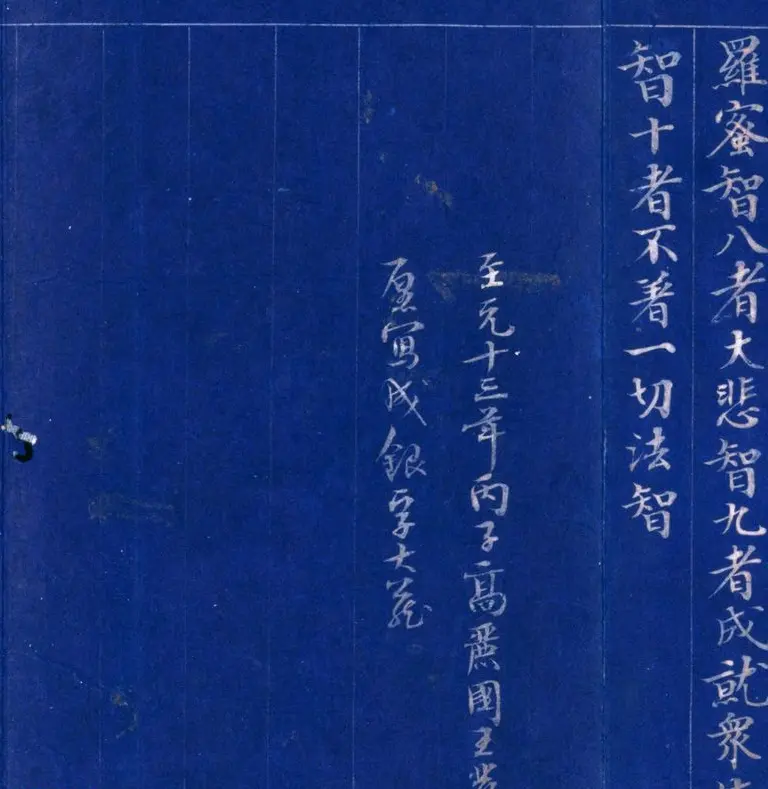 羅蜜智八者大悲智九者成就衆
智十者不著一切法智
至元十三年丙子高麗國王
願寫成銀字大藏